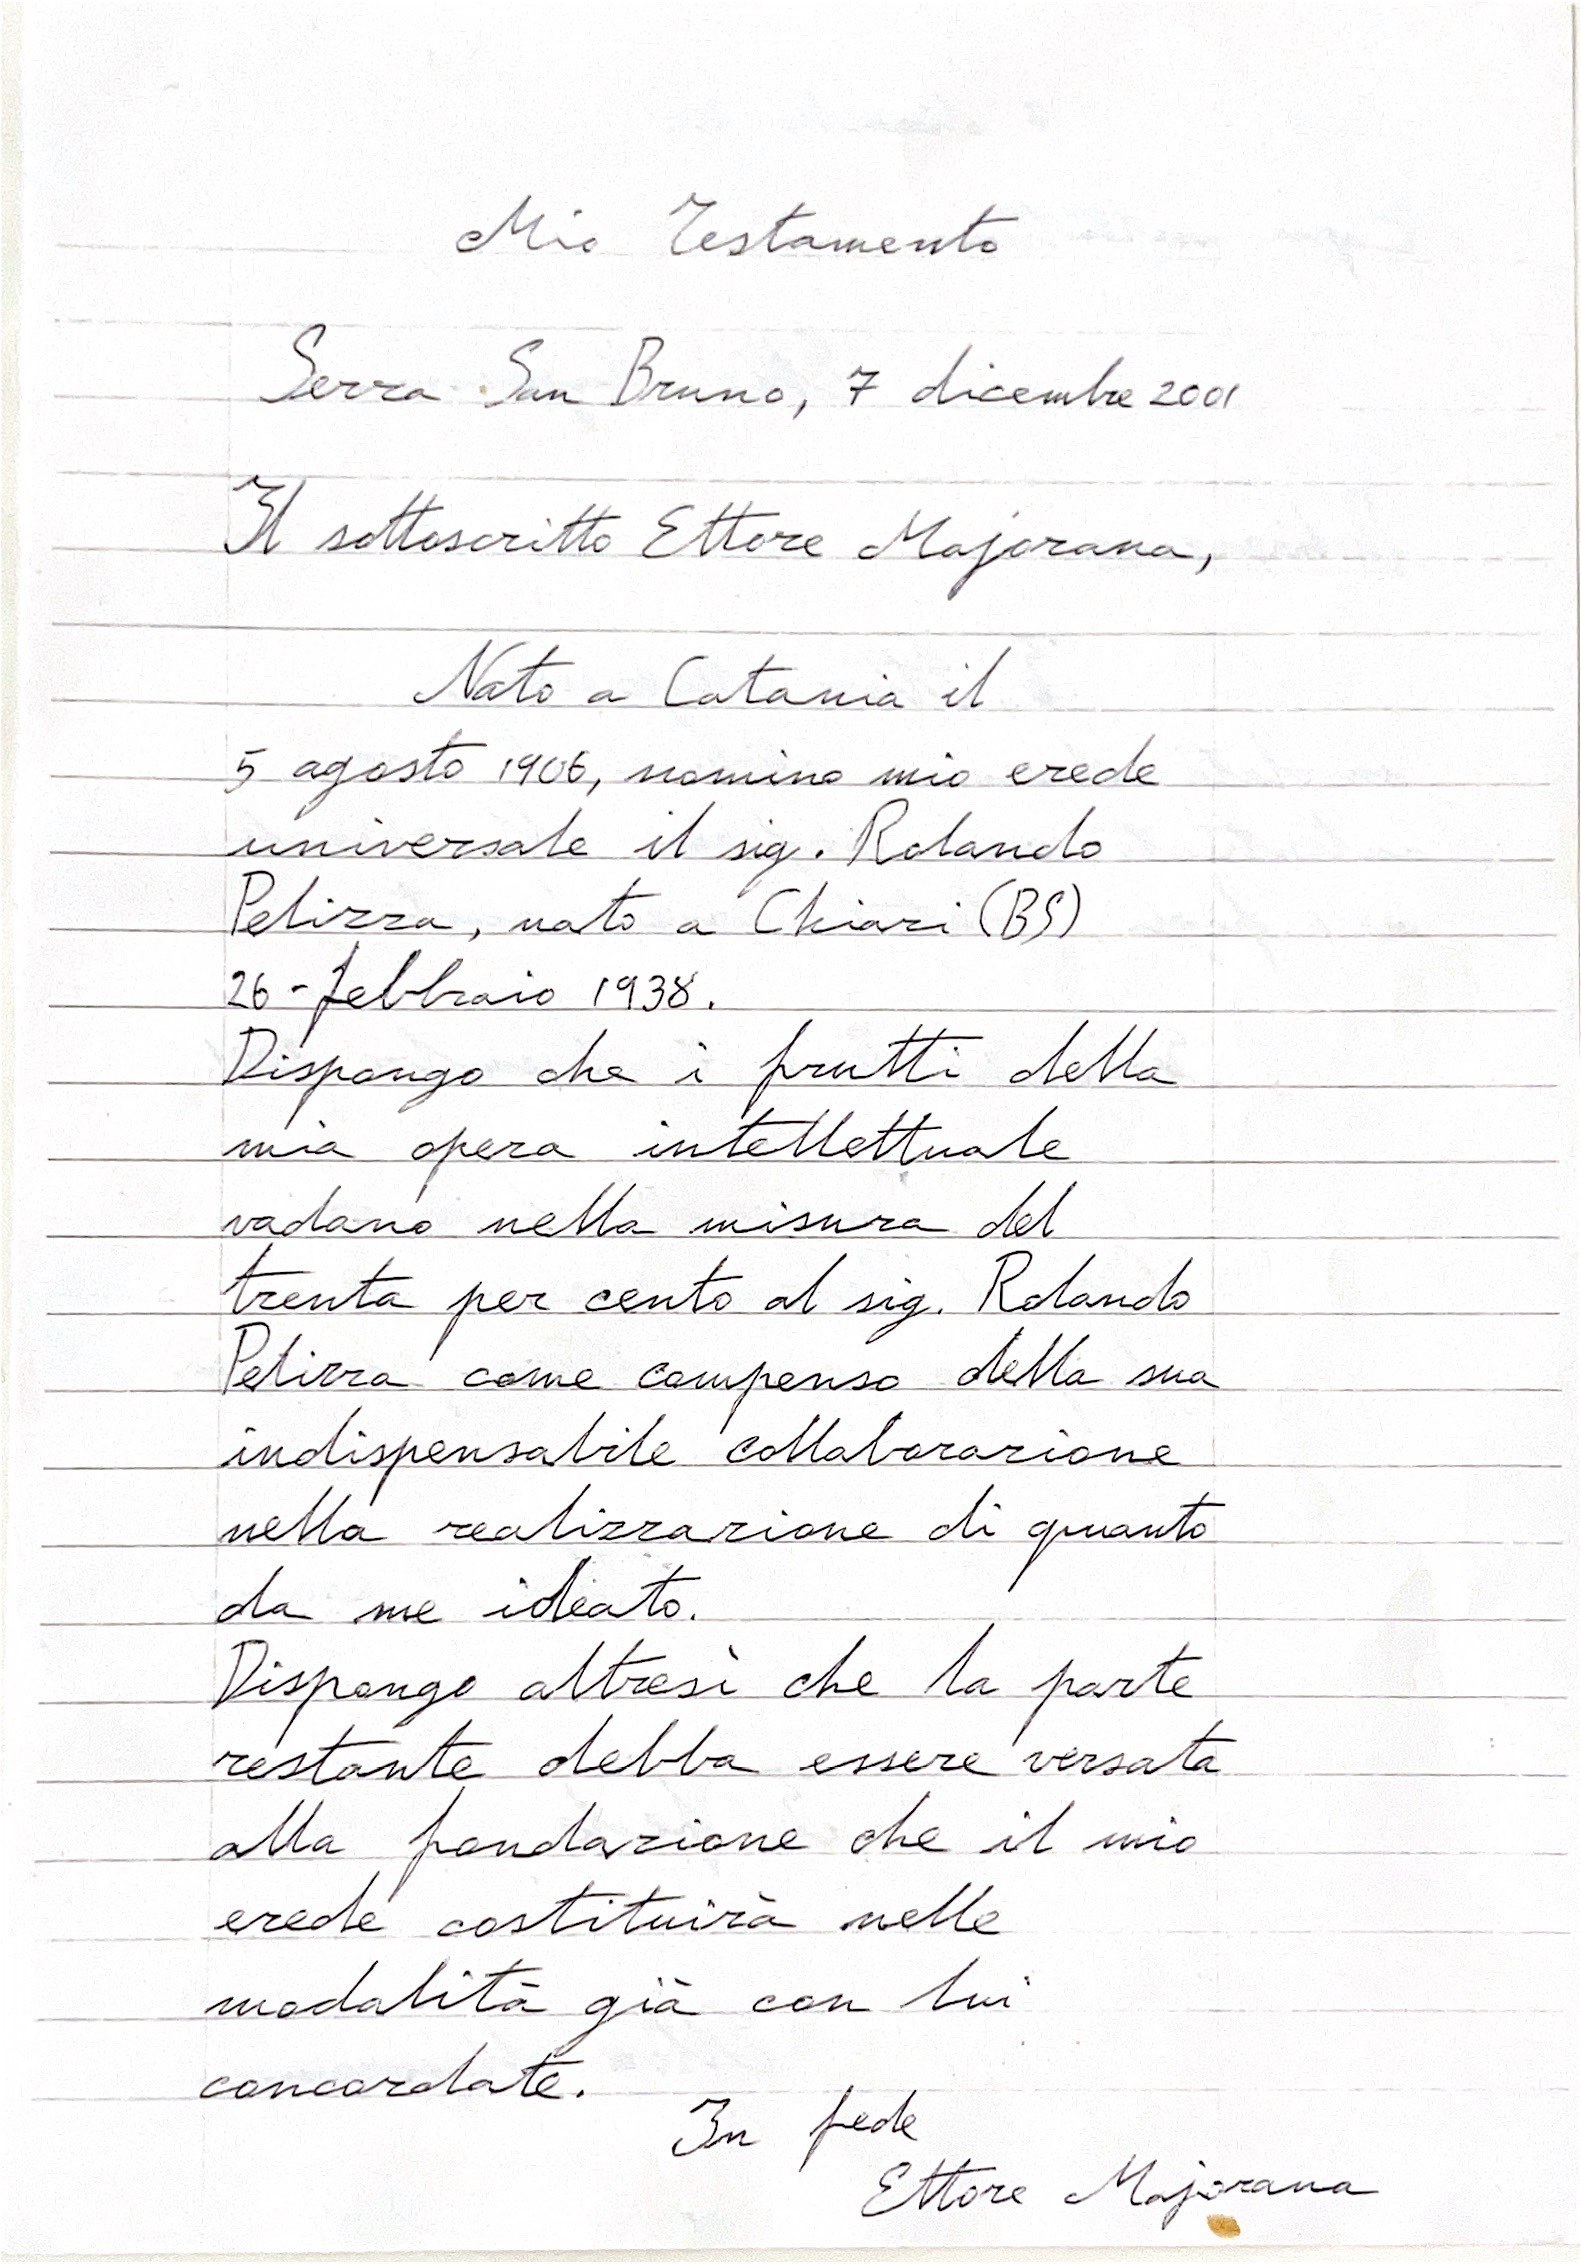 Mio Testamento
Serra San Bruno, 7 dicembre 2001
Il sottoscritto Ettore Majorana,
Nato a Catania il
5 agosto 1906, nomino mio erede
universale il sig. Rolando
Pelizza, nato a Chiari (BS)
26 - febbraio 1938.
Dispongo che i frutti della
mia opera intellettuale
vadano nella misura del
trenta per cento al sig. Rolando
Pelizza come compenso della sua
indispensabile collaborazione
nella realizzazione di quanto
da me ideato.
Dispongo altresì che la parte
restante debba essere versata
alla fondazione che il mio
erede costituirà nelle
modalità già con lui
concordate.
In fede
Ettore Majorana